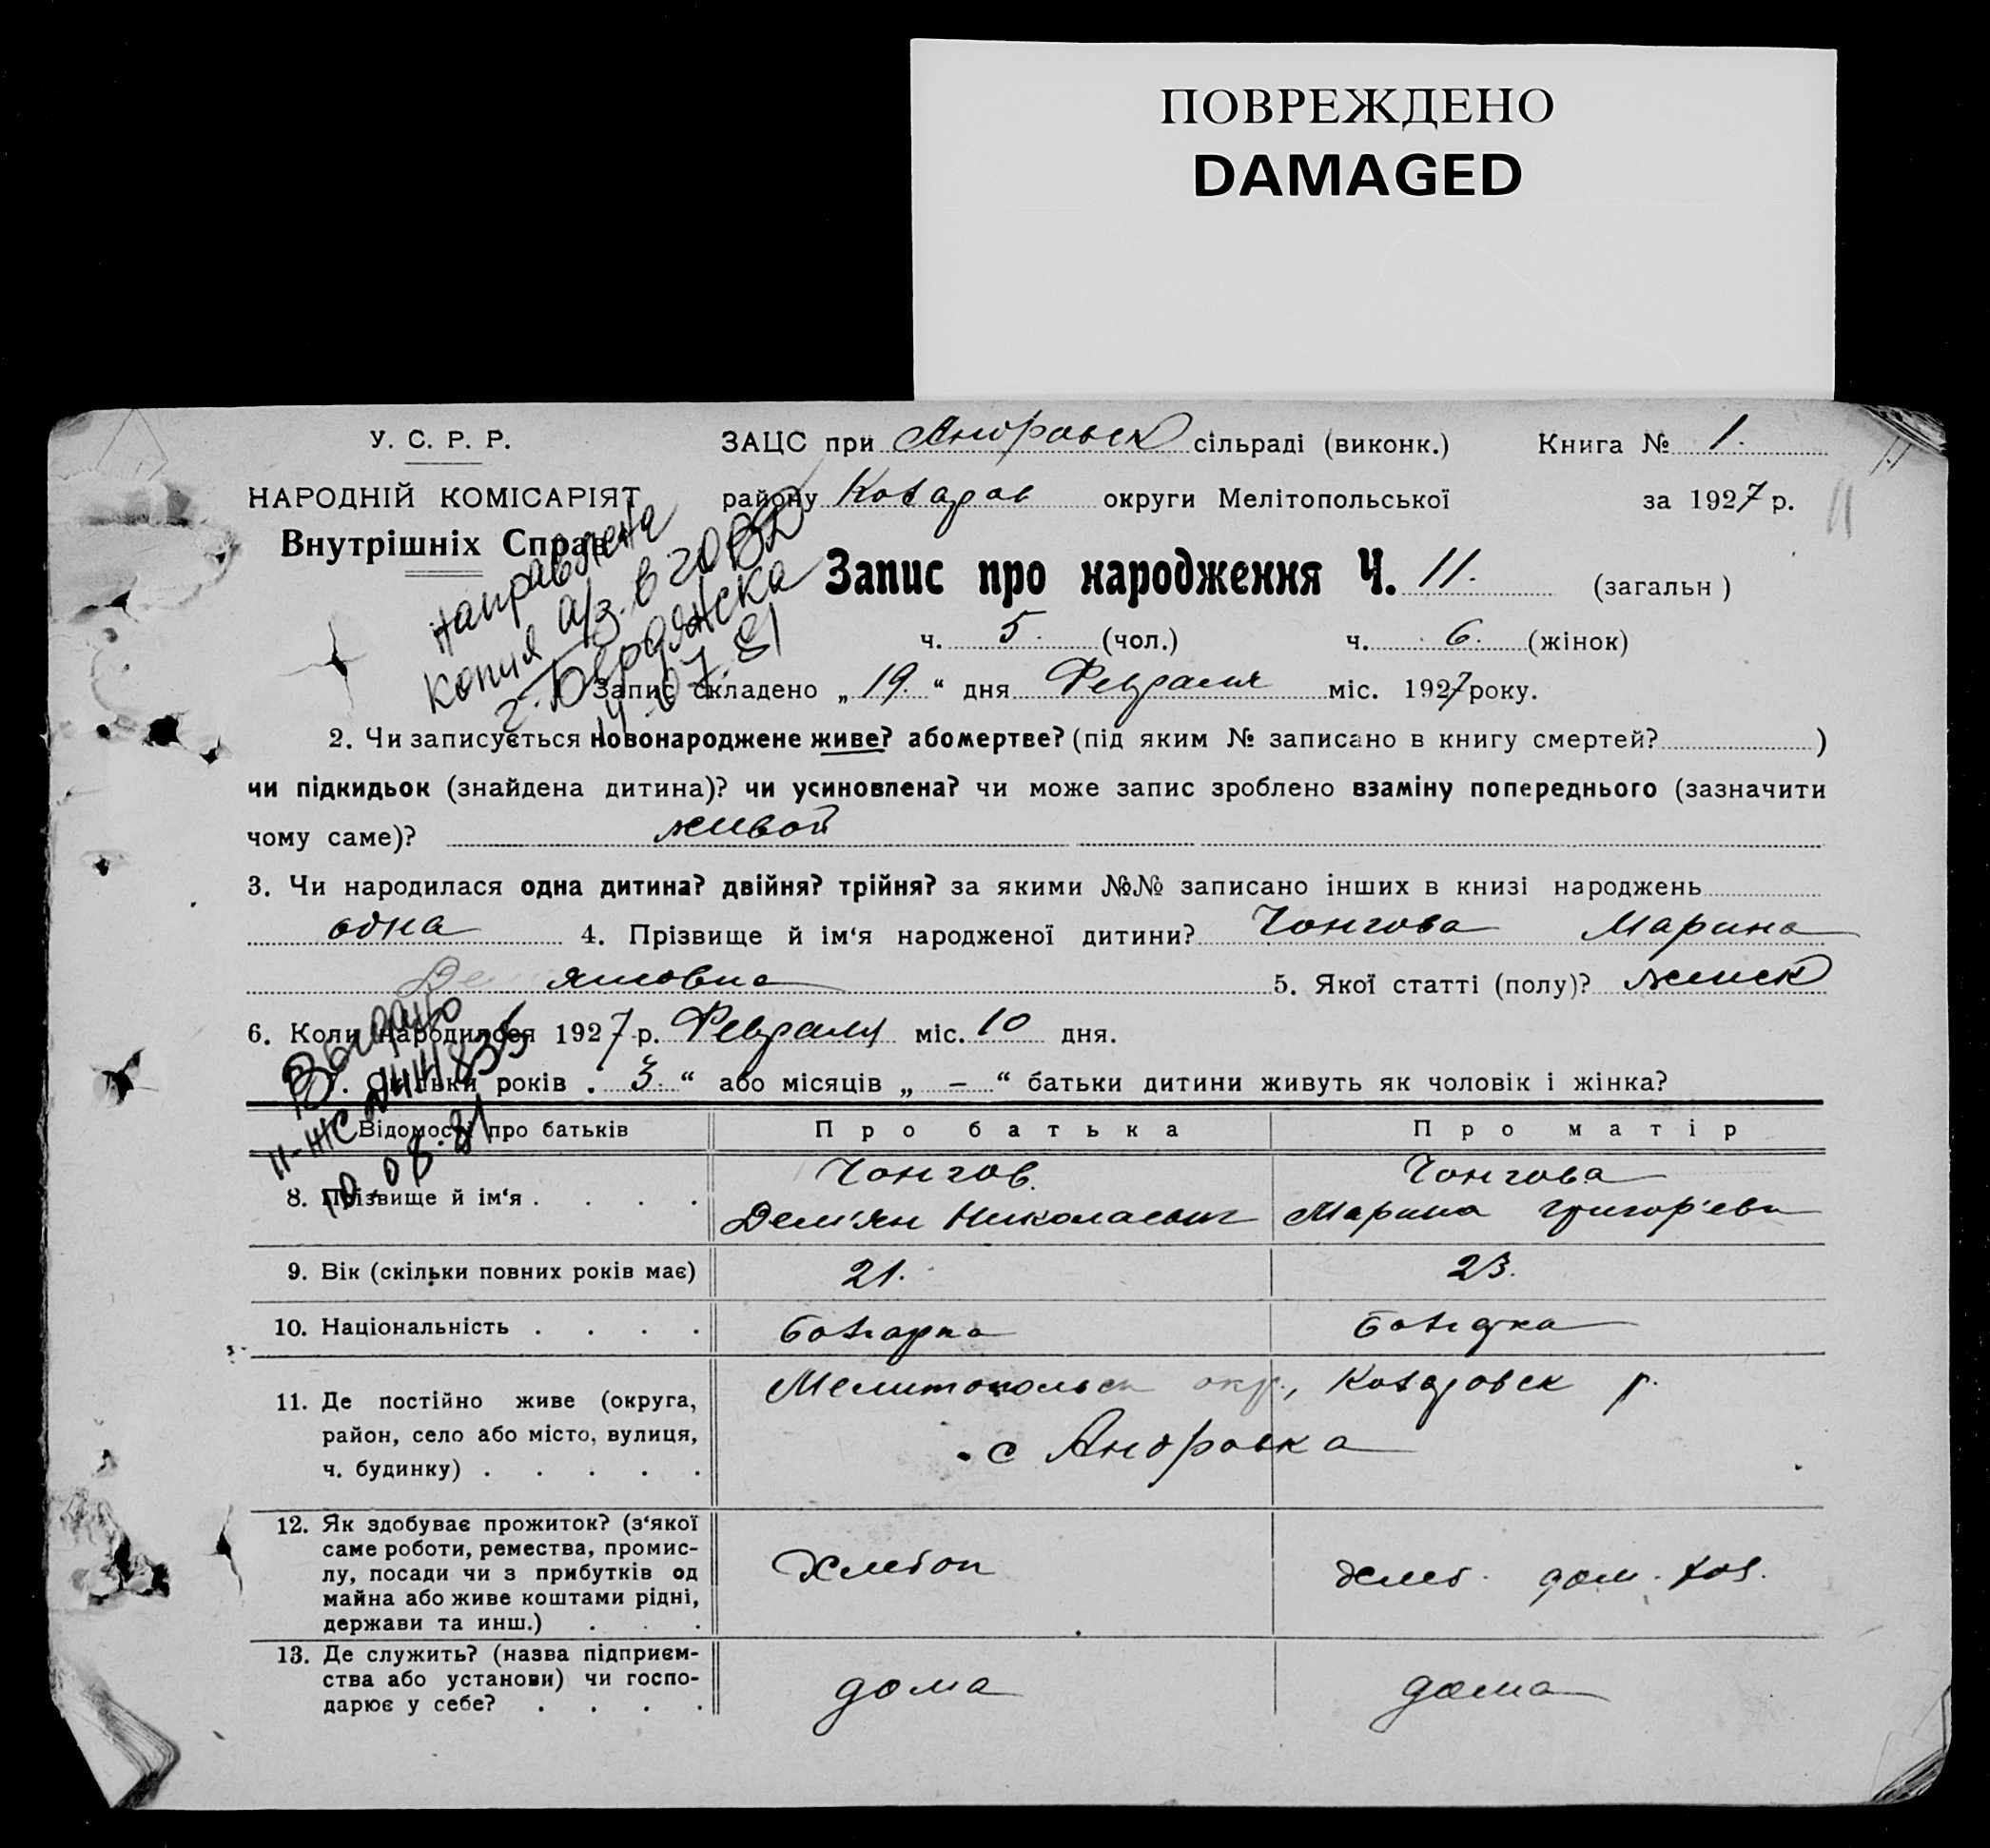 ПОВРЕЖДЕНО
DAMAGED
У. С. Р. Р.
НАРОДНІЙ КОМІСАРІЯТ
Внутрішніх Справ
ЗАЦС при Андровск сільраді (виконк.) Книга № 1.
району округи Мелітопольської за 1927 р.
11
направлена
копия а/з. в ГОВД
г. Бердянска
14.07.81
Запис про народження Ч. 11. (загальн)
ч. 5. (чол.) ч. 6. (жінок)
Запис складено „19.“ дня Февраля міс. 1927 року.
2. Чи записується новонароджене живе? або мертве? (під яким № записано в книгу смертей? )
чи підкидьок (знайдена дитина)? чи усиновлена? чи може запис зроблено взаміну попереднього (зазначити
чому саме)? живой
3. Чи народилася одна дитина? двійня? трійня? за якими №№ записано інших в книзі народжень
одна 4. Прізвище й ім‘я народженої дитини? Чонгова Марина
Демяновна 5. Якої статті (полу)? женск
6. Коли народилося 1927 р. Февраля міс. 10 дня.
7. Скільки років „3.“ або місяців „ – “ батьки дитини живуть як чоловік і жінка?
Выдано
II-ЖС
10.08.81
Відомості про батьків Про батька Про матір
8. Прізвище й ім‘я . . . . Чонгов. Чонгова
Дем'ян Николаевич Марина Григор'евн
9. Вік (скільки повних років має) 21. 23.
10. Національність . . . . Болгарка
11. Де постійно живе (округа, район, село або місто, вулиця, ч. будинку) . . . . . Мелитопольск окр., р.
с Андровка
12. Як здобуває прожиток? (з‘якої
саме роботи, ремества, промис-
лу, посади чи з прибутків од
майна або живе коштами рідні,
держави та инш.) . . . Хлебоп дом. хоз.
13. Де служить? (назва підприєм-
ства або установи) чи госпо-
дарює у себе? . . . . дома дома